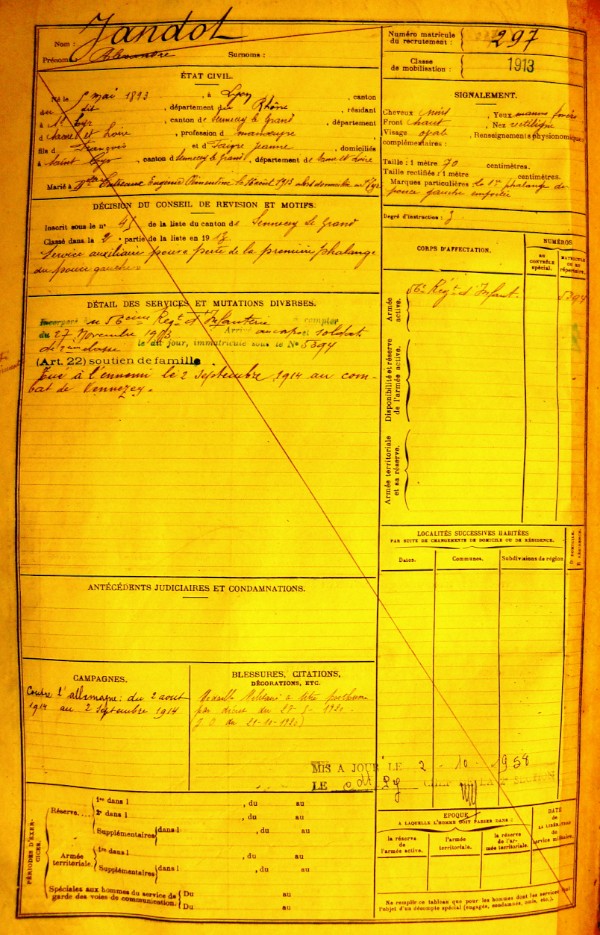 Jandot
Nom :
Prénoms : Surnoms :
Numéro matricule
du recrutement : 297
Classe
de mobilisation : 1913
ÉTAT CIVIL.
Né le mai 1893, à , canton
dudit, département du Rhône, résidant
à St Cyr, canton de Sennecey le Grand, département
de Saône et Loire, profession de
fils de François et de Jeanne, domiciliés
à Saint Cyr, canton de Sennecey le Grand, département de Saône et Loire
Marié à
SIGNALEMENT.
Cheveux noirs, Yeux marron foncé
Front , Nez rectiligne
Visage ovale, Renseignements physionomiques
complémentaires :
Taille : 1 mètre 70 centimètres.
Taille rectifiée : 1 mètre centimètres.
Marques particulières : la 1re phalange du
pouce gauche emportée
Degré d'instruction : 3
DÉCISION DU CONSEIL DE REVISION ET MOTIFS.
Inscrit sous le n° 45 de la liste du canton de Sennecey le Grand
Classé dans la 2e partie de la liste en 1913
Service auxiliaire pour perte de la première phalange
du pouce gauche
DÉTAIL DES SERVICES ET MUTATIONS DIVERSES.
Incorporé au 56eme Regt d'Infanterie à compter
du 27 Novembre 1913 Arrivé au corps soldat
de 2eme classe le dit jour, immatriculé sous le N° 5394
(Art. 22) soutien de famille
Tué à l'ennemi le 2 septembre 1914 au com-
bat de Vennezey.
CORPS D'AFFECTATION.
NUMÉROS
AU
CONTRÔLE
spécial.
MATRICULE
OU AU
répertoire.
Armée
active.
56e Régt d'Infant. 5394
Disponibilité et réserve
de l'armée active.
Armée territoriale
et sa réserve.
LOCALITÉS SUCCESSIVES HABITÉES
PAR SUITE DE CHANGEMENTS DE DOMICILE OU DE RÉSIDENCE.
Dates. Communes. Subdivisions de région.
D. DOMICILE.
R. RÉSIDENCE.
ANTÉCÉDENTS JUDICIAIRES ET CONDAMNATIONS.
CAMPAGNES.
Contre l'allemagne : du 2 aout
1914 au 2 septembre 1914
BLESSURES, CITATIONS,
DÉCORATIONS, ETC.
Médaille Militaire à titre posthume
par du 27- - 1920
(J.O. du 21-10-1920)
MIS A JOUR LE 2 - 10 - 1958
LE
PÉRIODES D'EXER-
CICES.
Réserve
1re dans l , du au
2e dans l , du au
Supplémentaires dans l , du au
Armée
territoriale.
1re dans l , du au
Supplémentaires dans l , du au
Spéciales aux hommes du service de
garde des voies de communication. Du au
Du au
ÉPOQUE
A LAQUELLE L'HOMME DOIT PASSER DANS :
la réserve
de l'armée active.
l'armée
territoriale.
la réserve
de l'ar-
mée territoriale.
DATE
DE
LA LIBÉRATION
du
service militaire.
Ne remplir ce tableau que pour les hommes dont les services font
l'objet d'un décompte spécial (engagés, condamnés, omis, etc.).